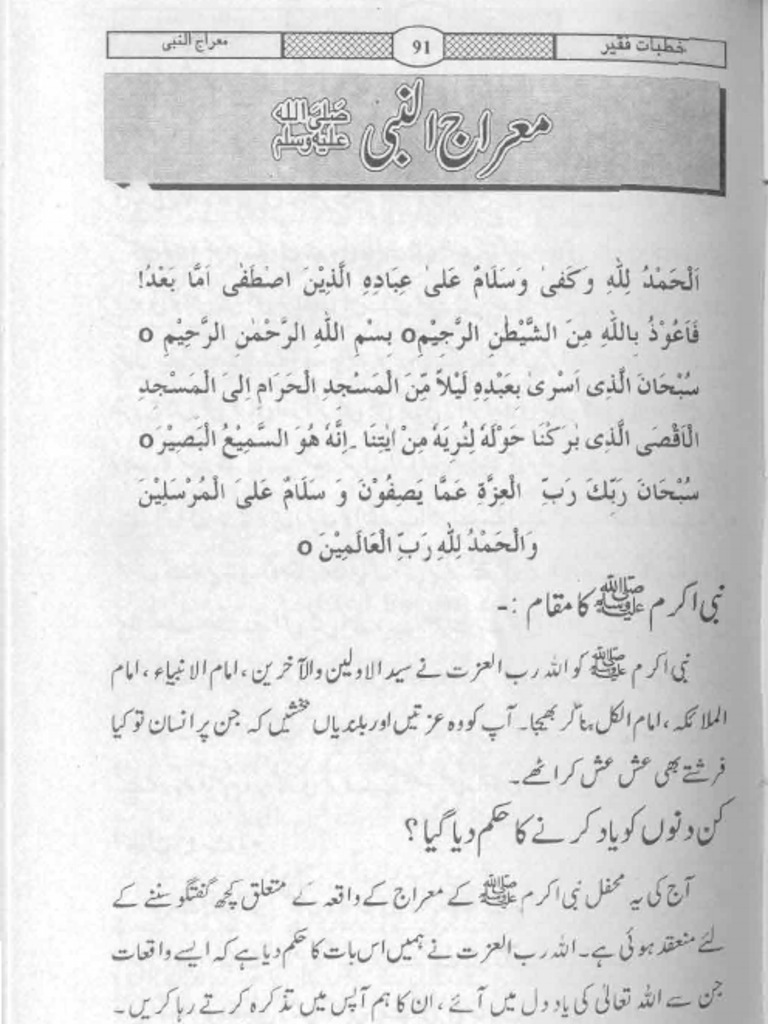 خطبات فقیر
91
معراج النبی
معراج النبی ﷺ
اَلْحَمْدُ لِلّٰهِ وَكَفىٰ وَسَلَامٌ عَلىٰ عِبَادِهِ الَّذِيْنَ اصْطَفٰى اَمَّا بَعْدُ!
فَاَعُوْذُ بِاللّٰهِ مِنَ الشَّيْطٰنِ الرَّجِيْمِ o بِسْمِ اللّٰهِ الرَّحْمٰنِ الرَّحِيْمِ o
سُبْحَانَ الَّذِى اَسْرىٰ بِعَبْدِهٖ لَيْلاً مِّنَ الْمَسْجِدِ الْحَرَامِ اِلىَ الْمَسْجِدِ
الْاَقْصَى الَّذِى بٰرَكْنَا حَوْلَهٗ لِنُرِيَهٗ مِنْ اٰيٰتِنَا ۔ اِنَّهٗ هُوَ السَّمِيْعُ الْبَصِيْرَ o
سُبْحَانَ رَبِّكَ رَبِّ الْعِزَّةِ عَمَّا يَصِفُوْنَ وَ سَلَامٌ عَلىَ الْمُرْسَلِيْنَ
وَالْحَمْدُ لِلّٰهِ رَبِّ الْعَالَمِيْنَ o
نبی اکرم ﷺ کا مقام :-
نبی اکرم ﷺ کو اللہ رب العزت نے سید الاولین والآخرین ، امام الانبیاء ، امام
الملائکہ ، امام الکل بنا کر بھیجا۔ آپ کو وہ عزتیں اور بلندیاں بخشیں کہ جن پر انسان تو کیا
فرشتے بھی عش عش کر اٹھے۔
کن دنوں کو یاد کرنے کا حکم دیا گیا ؟
آج کی یہ محفل نبی اکرم ﷺ کے معراج کے واقعہ کے متعلق کچھ گفتگو سننے کے
لئے منعقد ہوئی ہے۔ اللہ رب العزت نے ہمیں اس بات کا حکم دیا ہے کہ ایسے واقعات
جن سے اللہ تعالیٰ کی یاد دل میں آئے ، ان کا ہم آپس میں تذکرہ کرتے رہا کریں ۔